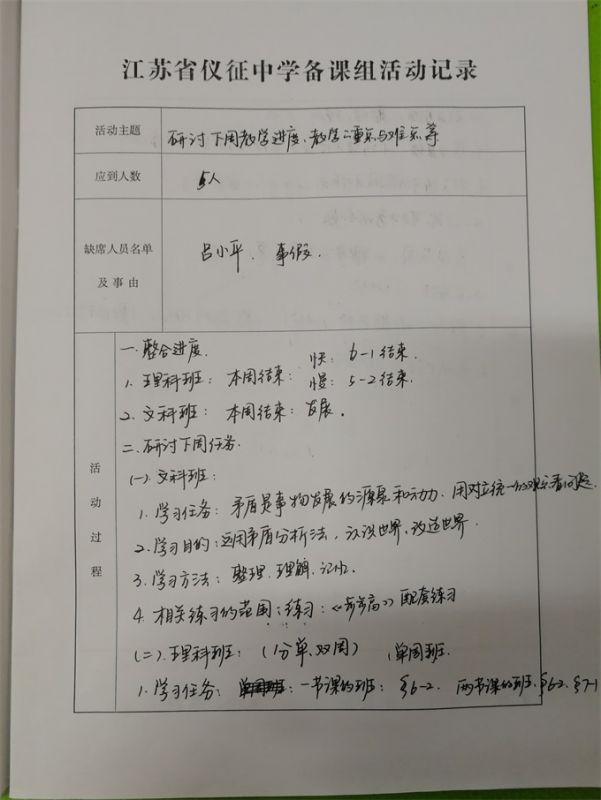 江苏省仪征中学备课组活动记录
活动主题
研讨下周教学进度、教学重点与难点等
应到人数
5人
缺席人员名单
及事由
吕小平、事假.
活动过程
一.整合进度.
快: 6-1结束.
1. 理科班: 本周结束:
慢: 5-2结束.
2. 文科班: 本周结束: 发展.
二.研讨下周任务.
(一).文科班:
1. 学习任务: 矛盾是事物发展的源泉和动力.用对立统一的观点看问题.
2. 学习目的: 运用矛盾分析法, 认识世界, 改造世界.
3. 学习方法: 整理.理解.记忆.
4. 相关练习的范围: 练习: 《步步高》配套练习
(二).理科班: (分单、双周) 单周班.
1. 学习任务: 一节课的班: §6-2. 两节课的班.§6-2、§7-1